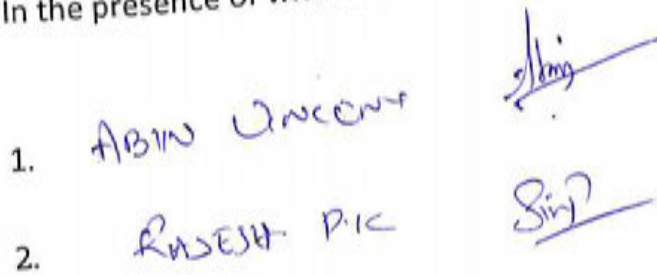 In the presence of
1. ABIN VINCENT
2. RAJESH P.K